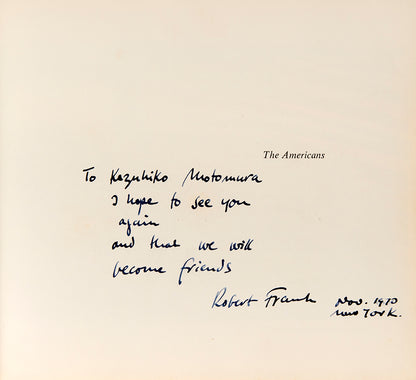 The Americans
To Kazuhiko Motomura
I hope to see you
again
and that we will
become friends
Robert Frank Nov. 1970
New York.